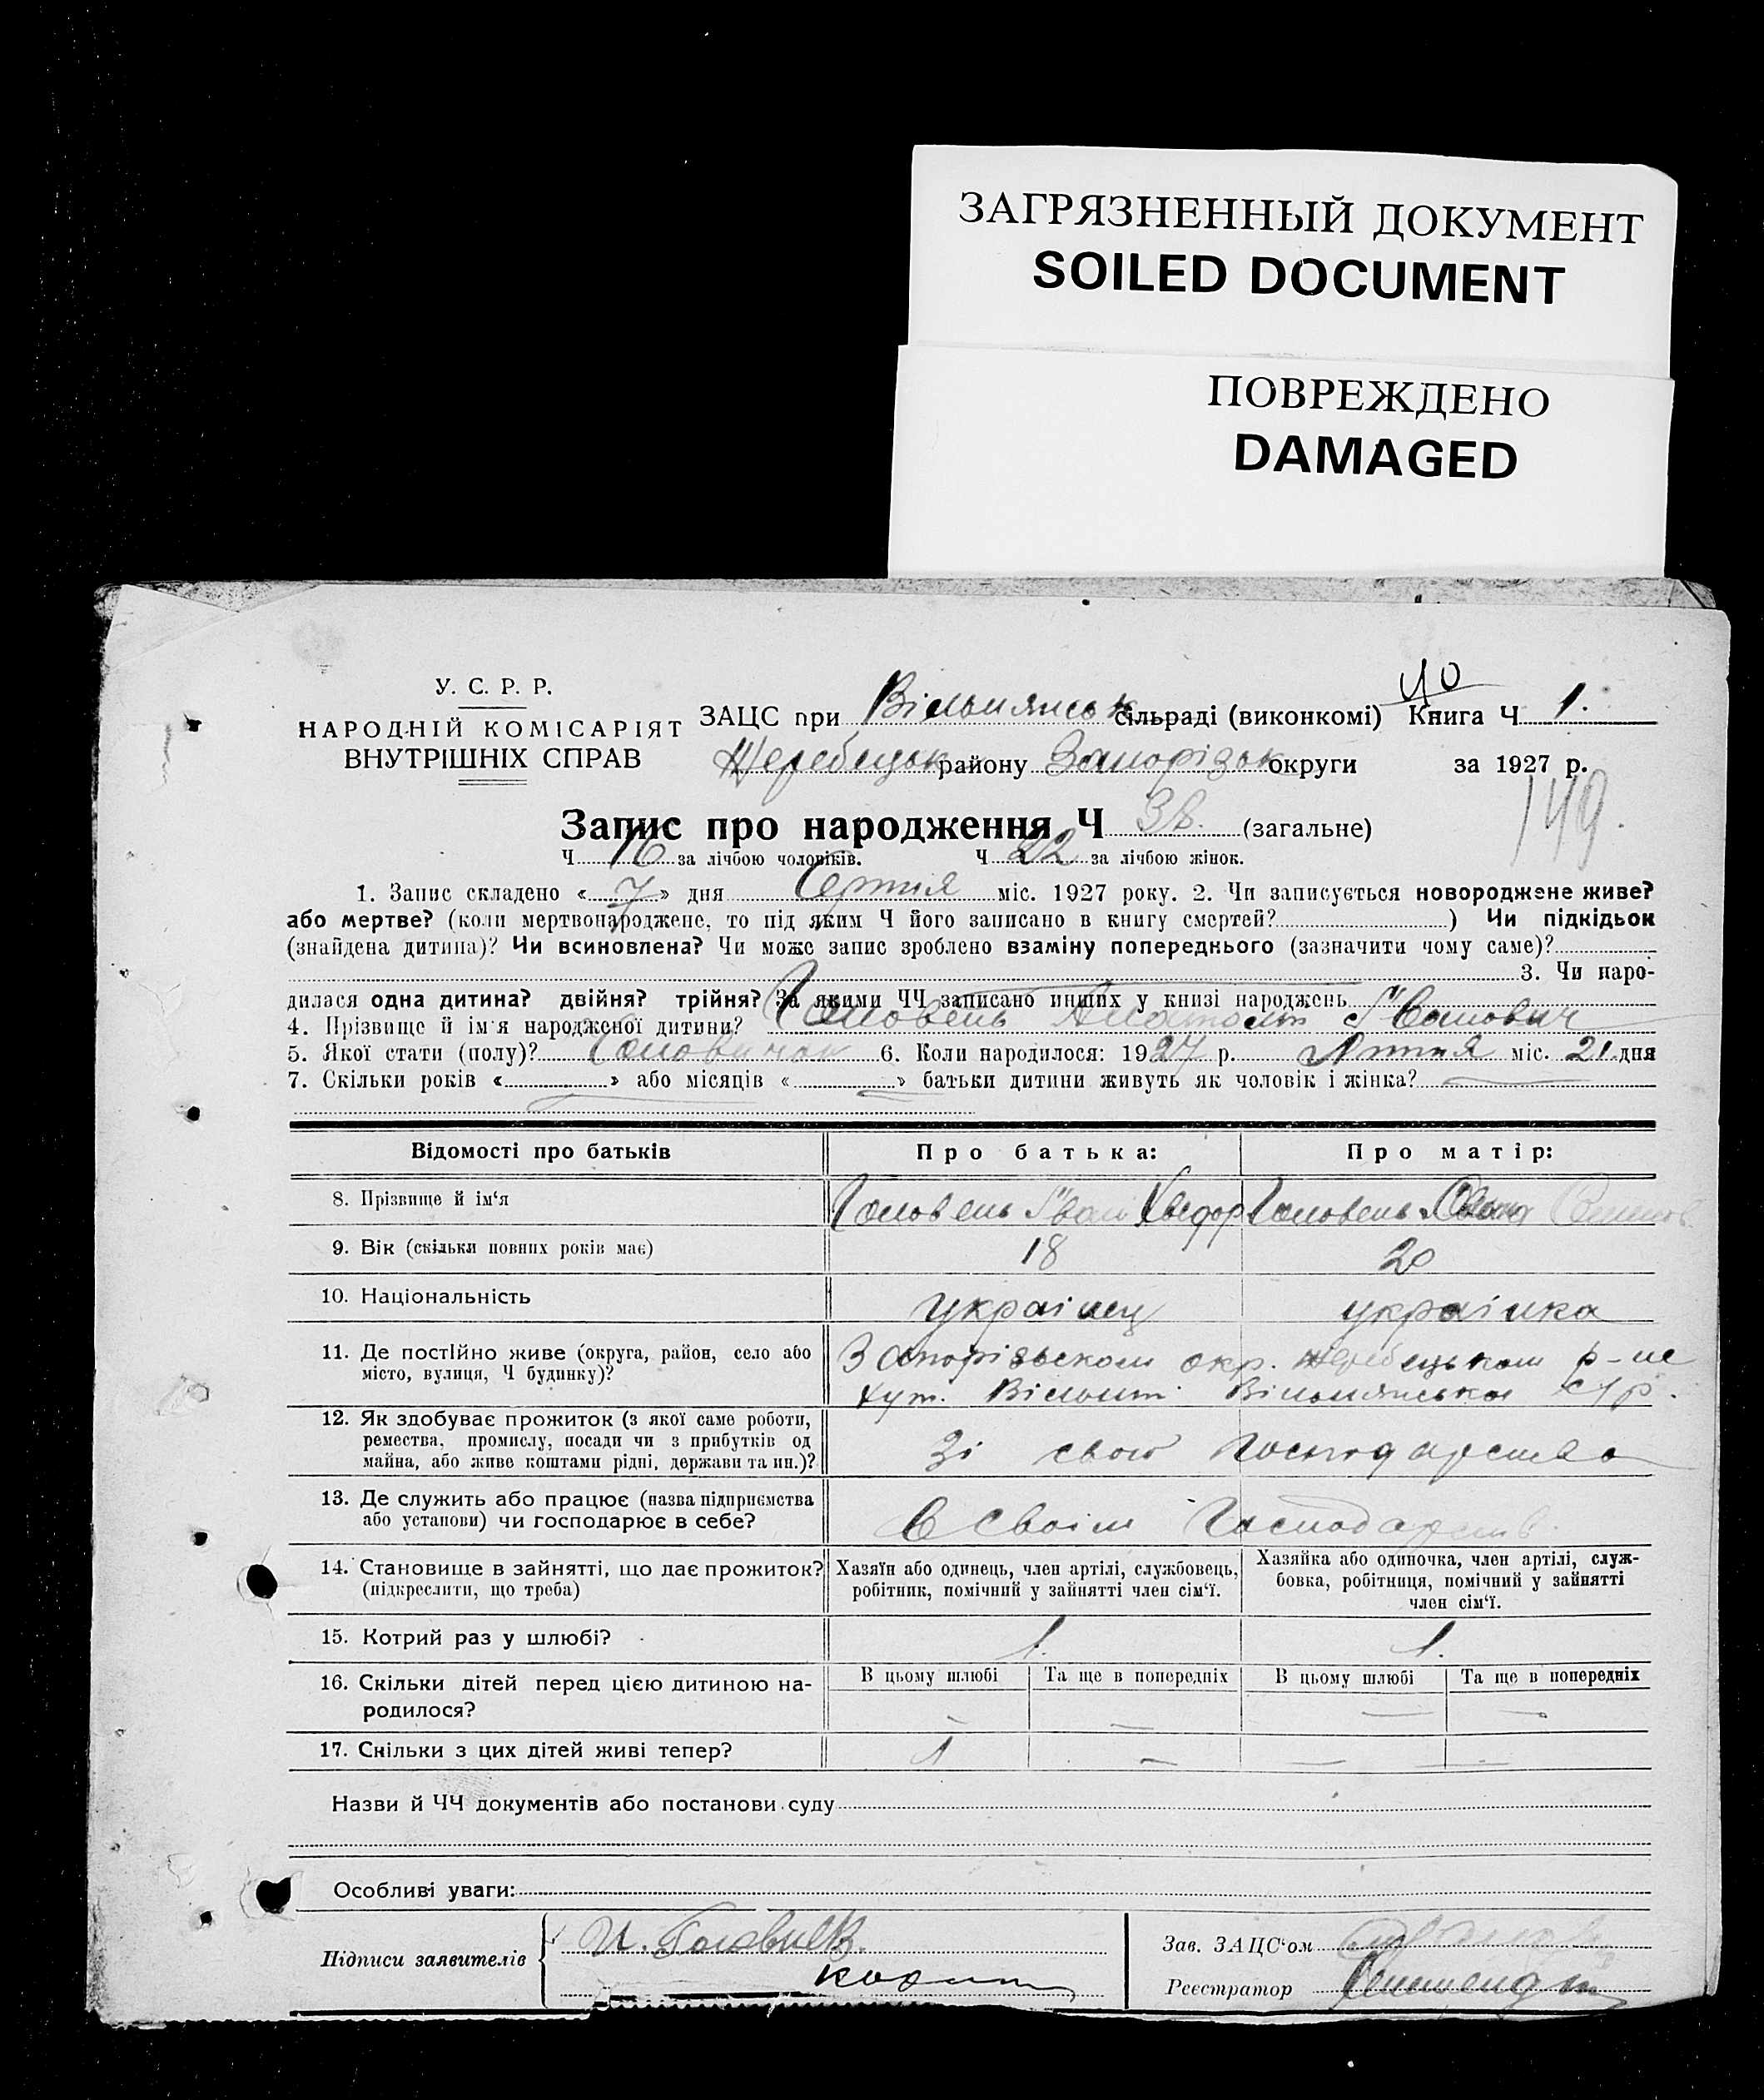 ЗАГРЯЗНЕННЫЙ ДОКУМЕНТ
SOILED DOCUMENT
ПОВРЕЖДЕНО
DAMAGED
У. С. Р. Р.
НАРОДНІЙ КОМІСАРІЯТ
ВНУТРІШНІХ СПРАВ
40
ЗАЦС при Вільнянськ сільраді (виконкомі) Книга Ч 1.
Жеребецьк району Запорізьк округи за 1927 р.
149.
Запис про народження Ч 38. (загальне)
Ч 16 за лічбою чоловіків. Ч 22 за лічбою жінок.
1. Запис складено « 7 » дня Серпня міс. 1927 року. 2. Чи записується новороджене живе?
або мертве? (коли мертвонароджене, то під яким Ч його записано в книгу смертей? ) Чи підкідьок
(знайдена дитина)? Чи всиновлена? Чи може запис зроблено взаміну попереднього (зазначити чому саме)?
3. Чи наро-
дилася одна дитина? двійня? трійня? За якими ЧЧ записано инших у книзі народжень
4. Прізвище й ім'я народженої дитини? Головень Анатолт Іванович
5. Якої стати (полу)? Чоловичои 6. Коли народилося: 1927 р. Липня міс. 21 дня
7. Скільки років « » або місяців « » батьки дитини живуть як чоловік і жінка?
Відомості про батьків Про батька: Про матір:
8. Прізвище й ім‘я Головень Іван Хведор Головень
9. Вік (скільки повних років має) 18 20
10. Національність українец українка
11. Де постійно живе (округа, район, село або
місто, вулиця, Ч будинку)?
Запорізьском окр. Жеребецьком р-не
хут. Вільнянська с/р.
12. Як здобуває прожиток (з якої саме роботи,
ремества, промислу, посади чи з прибутків од
майна, або живе коштами рідні, держави та ин.)?
Зі свою господарства
13. Де служить або працює (назва підприємства
або установи) чи господарює в себе?
В своім господарств.
14. Становище в зайнятті, що дає прожиток?
(підкреслити, що треба)
Хазяїн або одинець, член артілі, службовець,
робітник, помічний у зайнятті член сім‘ї.
Хазяйка або одиночка, член артілі, служ-
бовка, робітниця, помічний у зайнятті
член сім‘ї.
15. Котрий раз у шлюбі? 1. 1.
16. Скільки дітей перед цією дитиною на-
родилося?
В цьому шлюбі Та ще в попередніх В цьому шлюбі Та ще в попередніх
— — — —
17. Скільки з цих дітей живі тепер? 1 — — —
Назви й ЧЧ документів або постанови суду
Особливі уваги:
Підписи заявителів
Зав. ЗАЦС‘ом
Реєстратор